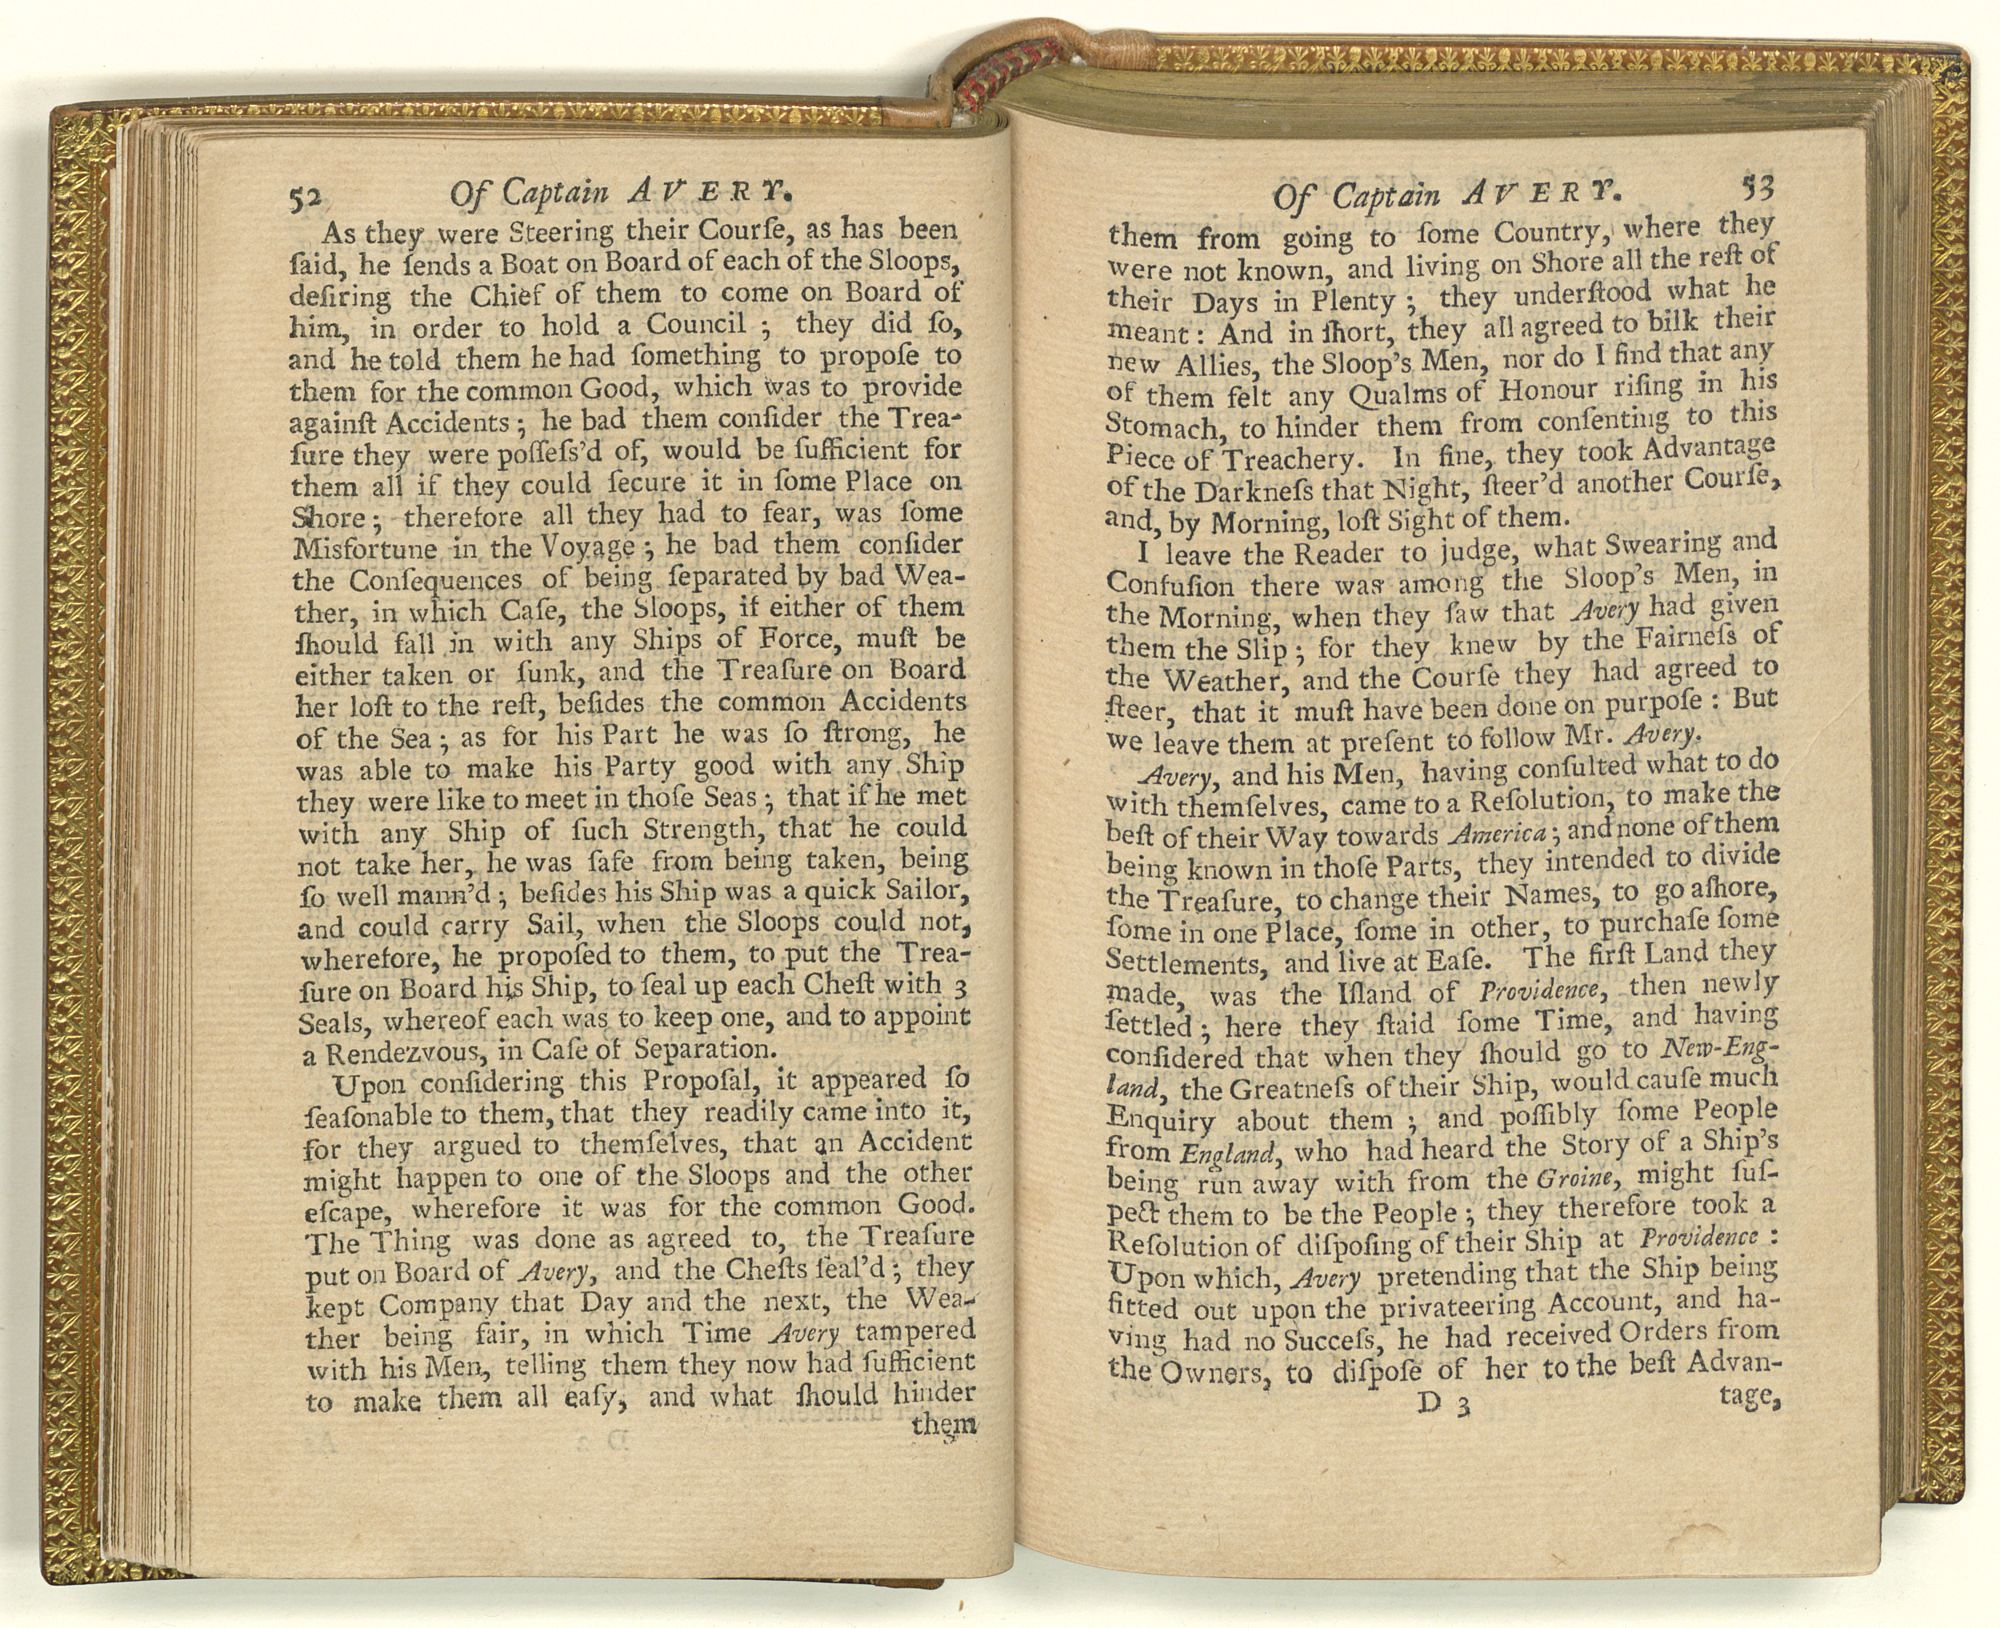 52 Of Captain AVERY.
As they were Steering their Courſe, as has been
ſaid, he ſends a Boat on Board of each of the Sloops,
deſiring the Chief of them to come on Board of
him, in order to hold a Council ; they did ſo,
and he told them he had ſomething to propoſe to
them for the common Good, which was to provide
againſt Accidents ; he bad them conſider the Trea-
ſure they were poſſeſs'd of, would be ſufficient for
them all if they could ſecure it in ſome Place on
Shore ; therefore all they had to fear, was ſome
Misfortune in the Voyage ; he bad them conſider
the Conſequences of being ſeparated by bad Wea-
ther, in which Caſe, the Sloops, if either of them
ſhould fall in with any Ships of Force, muſt be
either taken or ſunk, and the Treaſure on Board
her loſt to the reſt, beſides the common Accidents
of the Sea ; as for his Part he was ſo ſtrong, he
was able to make his Party good with any Ship
they were like to meet in thoſe Seas ; that if he met
with any Ship of ſuch Strength, that he could
not take her, he was ſafe from being taken, being
ſo well mann'd ; beſides his Ship was a quick Sailor,
and could carry Sail, when the Sloops could not,
wherefore, he propoſed to them, to put the Trea-
ſure on Board his Ship, to ſeal up each Cheſt with 3
Seals, whereof each was to keep one, and to appoint
a Rendezvous, in Caſe of Separation.
Upon conſidering this Propoſal, it appeared ſo
ſeaſonable to them, that they readily came into it,
for they argued to themſelves, that an Accident
might happen to one of the Sloops and the other
eſcape, wherefore it was for the common Good.
The Thing was done as agreed to, the Treaſure
put on Board of Avery, and the Cheſts ſeal'd ; they
kept Company that Day and the next, the Wea-
ther being fair, in which Time Avery tampered
with his Men, telling them they now had ſufficient
to make them all eaſy, and what ſhould hinder
them
Of Captain AVERY. 53
them from going to ſome Country, where they
were not known, and living on Shore all the reſt of
their Days in Plenty ; they underſtood what he
meant : And in ſhort, they all agreed to bilk their
new Allies, the Sloop's Men, nor do I find that any
of them felt any Qualms of Honour riſing in his
Stomach, to hinder them from conſenting to this
Piece of Treachery. In fine, they took Advantage
of the Darkneſs that Night, ſteer'd another Courſe,
and, by Morning, loſt Sight of them.
I leave the Reader to judge, what Swearing and
Confuſion there was among the Sloop's Men, in
the Morning, when they ſaw that Avery had given
them the Slip ; for they knew by the Fairneſs of
the Weather, and the Courſe they had agreed to
ſteer, that it muſt have been done on purpoſe : But
we leave them at preſent to follow Mr. Avery.
Avery, and his Men, having conſulted what to do
with themſelves, came to a Reſolution, to make the
beſt of their Way towards America ; and none of them
being known in thoſe Parts, they intended to divide
the Treaſure, to change their Names, to go aſhore,
ſome in one Place, ſome in other, to purchaſe ſome
Settlements, and live at Eaſe. The firſt Land they
made, was the Iſland of Providence, then newly
ſettled ; here they ſtaid ſome Time, and having
conſidered that when they ſhould go to New-Eng-
land, the Greatneſs of their Ship, would cauſe much
Enquiry about them ; and poſſibly ſome People
from England, who had heard the Story of a Ship's
being run away with from the Groine, might ſuſ-
pect them to be the People ; they therefore took a
Reſolution of diſpoſing of their Ship at Providence :
Upon which, Avery pretending that the Ship being
fitted out upon the privateering Account, and ha-
ving had no Succeſs, he had received Orders from
the Owners, to diſpoſe of her to the beſt Advan-
D 3 tage,